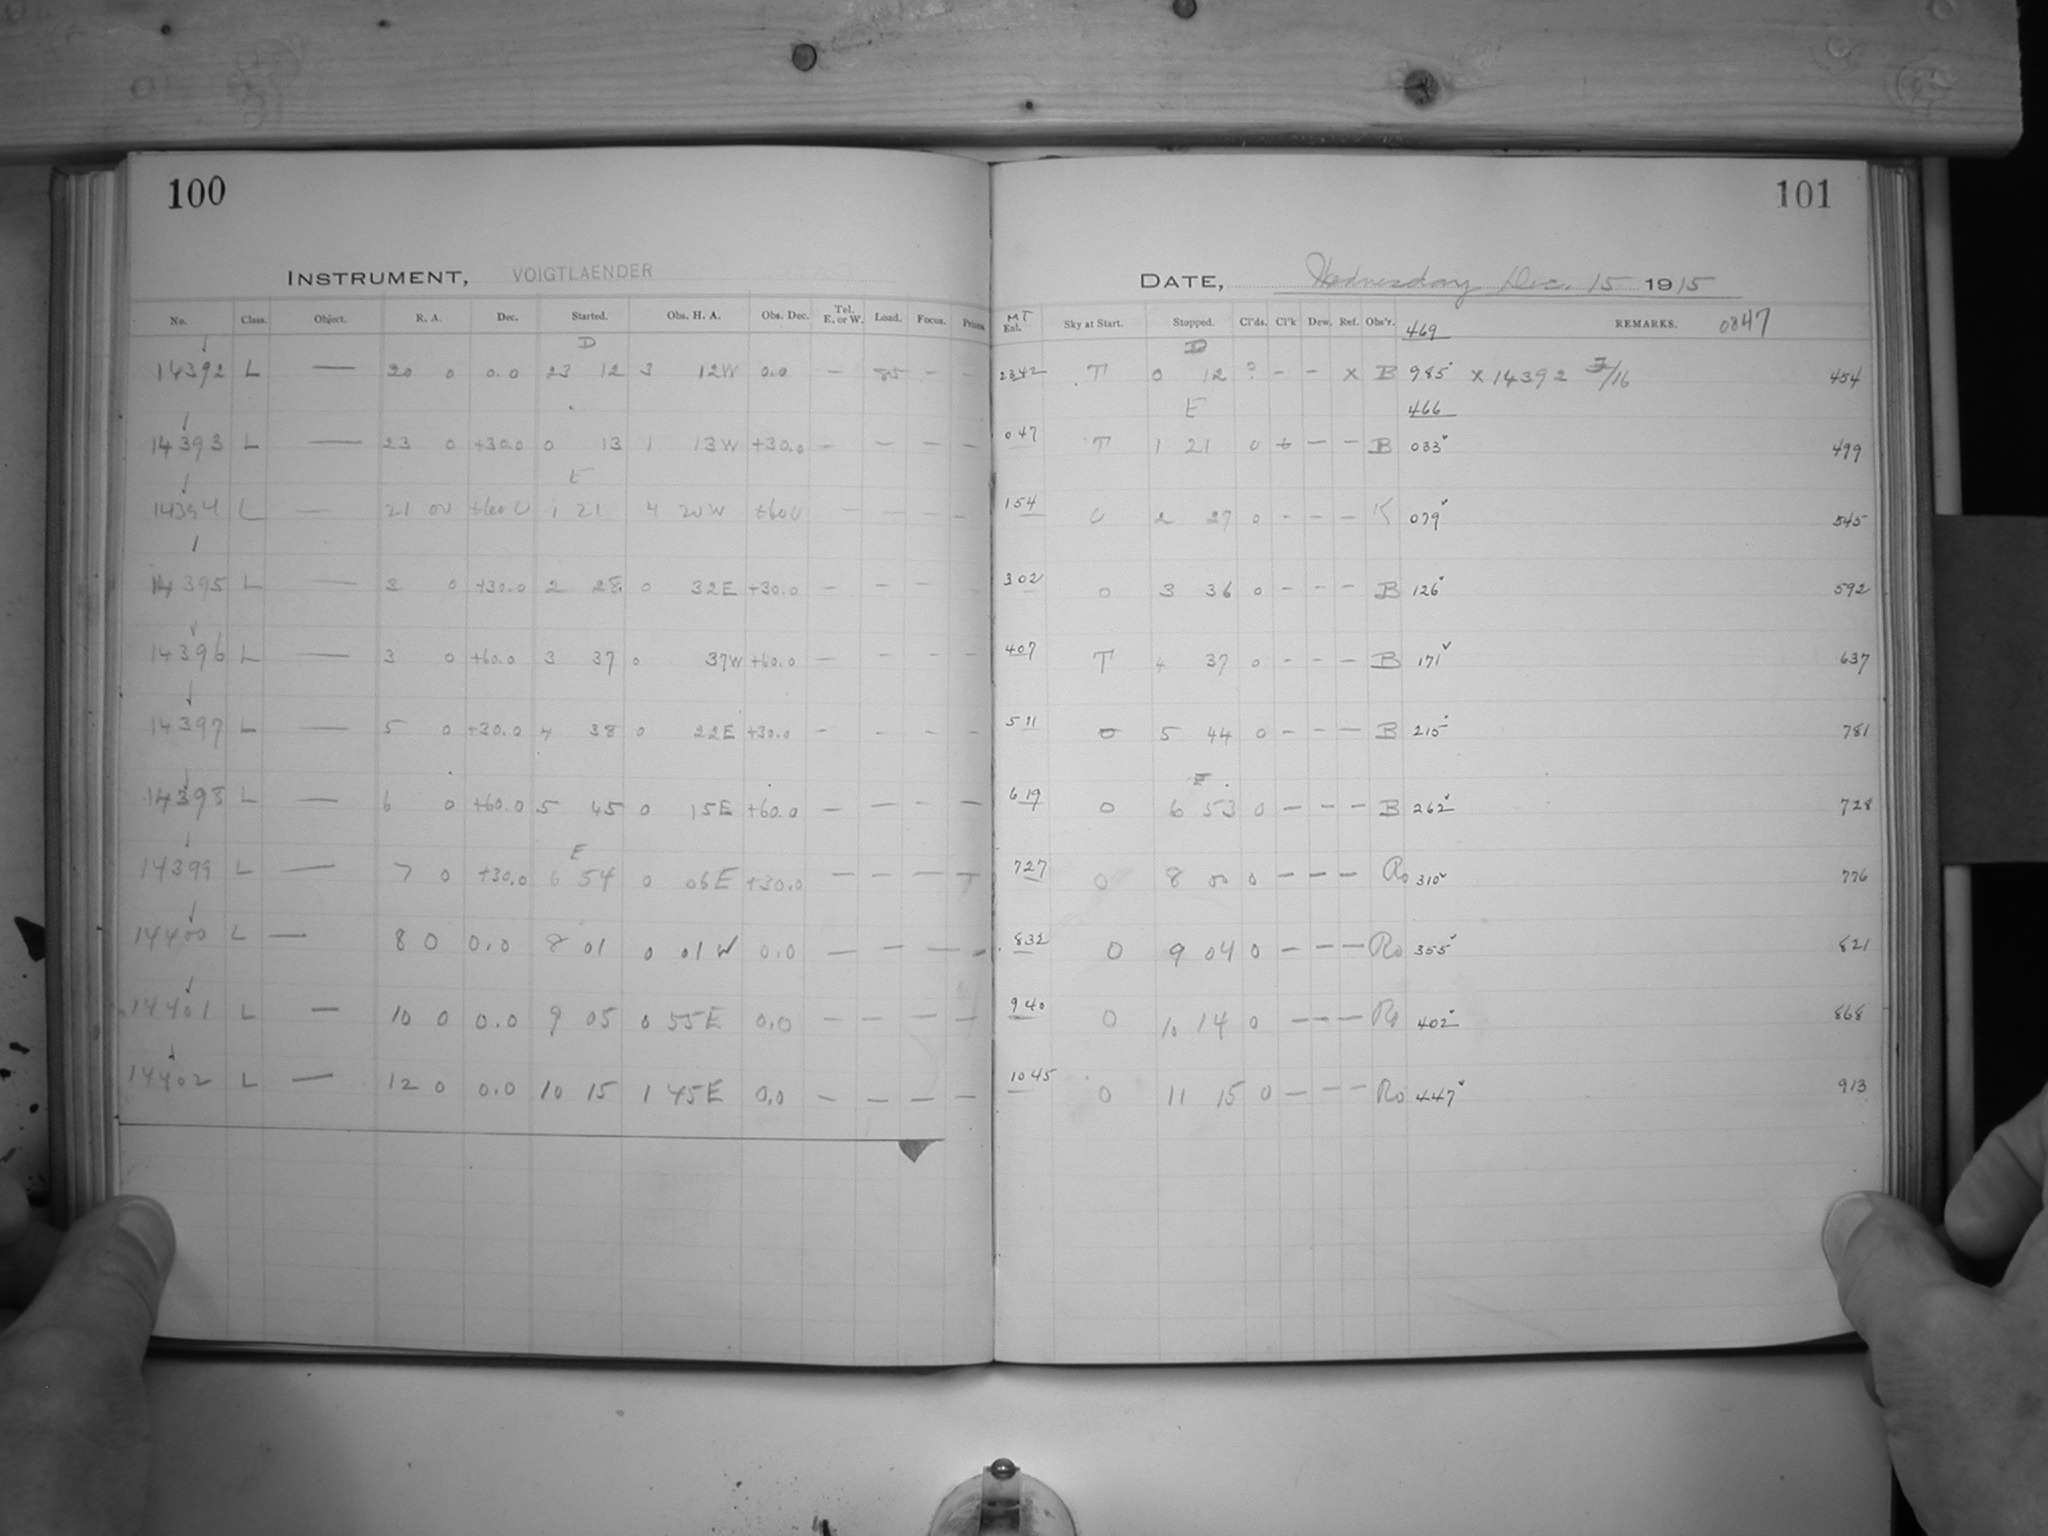 100
INSTRUMENT, VOIGTLAENDER
No. Class. Object. R. A. Dec. Started. Obs. H. A. Obs. Dec. Tel. E. or W. Load. Focus. Prism
D
14392 L — 20 0 0.0 23 12 3 12W 0.0 — 85 - -
14393 L — 23 0 +30.0 0 13 1 13W +30.0 - - - -
E
14394 L — 21 00 +60 0 1 21 4 20W +60 0 - - - -
14395 L — 3 0 +30.0 2 28 0 32E +30.0 - - - -
14396 L — 3 0 +60.0 3 37 0 37W +60.0 - - - -
14397 L — 5 0 +30.0 4 38 0 22E +30.0 - - - -
14398 L — 6 0 +60.0 5 45 0 15E +60.0 — — — —
E
14399 L — 7 0 +30.0 6 54 0 06E +30.0 — — — —
14400 L — 8 0 0.0 8 01 0 01W 0.0 — — — —
14401 L — 10 0 0.0 9 05 0 55E 0.0 — — — —
14402 L — 12 0 0.0 10 15 1 45E 0.0 — — — —
101
DATE, Wednesday Dec. 15 1915
MT
Enl. Sky at Start. Stopped. Cl'ds. Cl'k Dew. Ref. Obs'r. 469 REMARKS. 0847
D
2342 T 0 12 ? - - x B 985 x 14392 3/16 454
E 466
047 T 1 21 0 - - - B 033 499
154 0 2 27 0 - - - K 079 545
302 0 3 36 0 - - - B 126 592
407 T 4 37 0 - - - B 171 637
511 0 5 44 0 - - - B 215 781
E
619 0 6 53 0 - - - B 262 728
727 0 8 00 0 - - - Ro 310 776
832 0 9 04 0 - - - Ro 355 821
940 0 10 14 0 - - - Ro 402 868
1045 0 11 15 0 - - - Ro 447 913